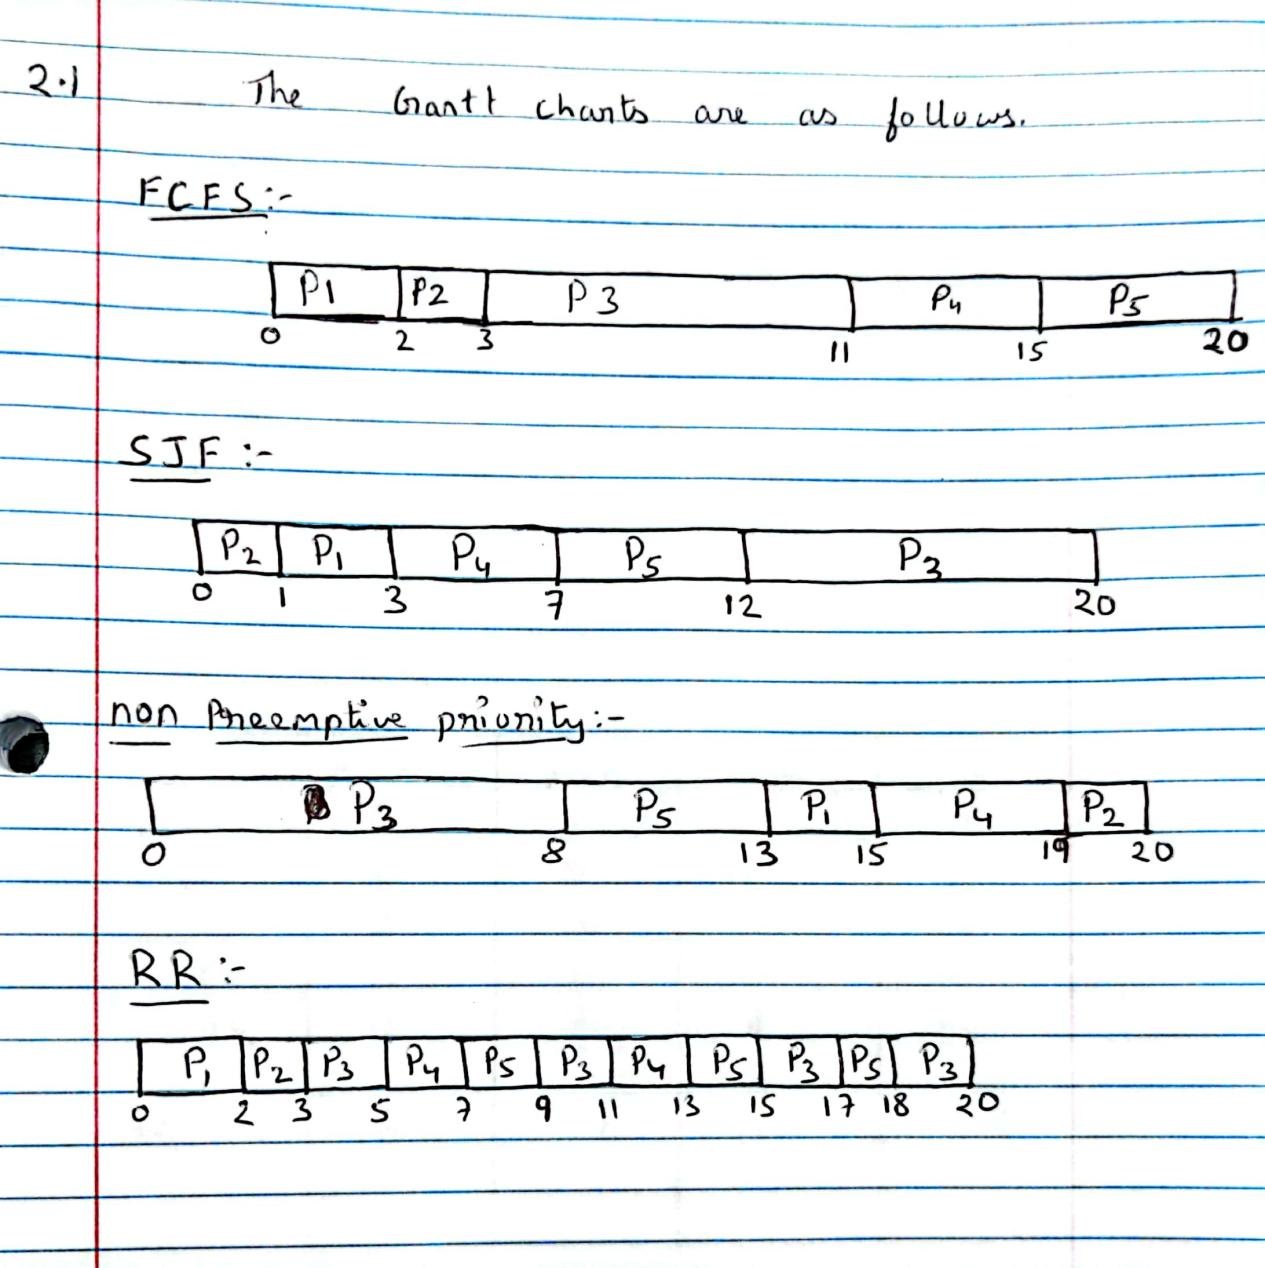 2.1 The Gantt charts are as follows.
FCFS:-
P1 P2 P3 P4 P5
0 2 3 11 15 20
SJF :-
P2 P1 P4 P5 P3
0 1 3 7 12 20
non Preemptive priority:-
P3 P5 P1 P4 P2
0 8 13 15 19 20
RR :-
P1 P2 P3 P4 P5 P3 P4 P5 P3 P5 P3
0 2 3 5 7 9 11 13 15 17 18 20